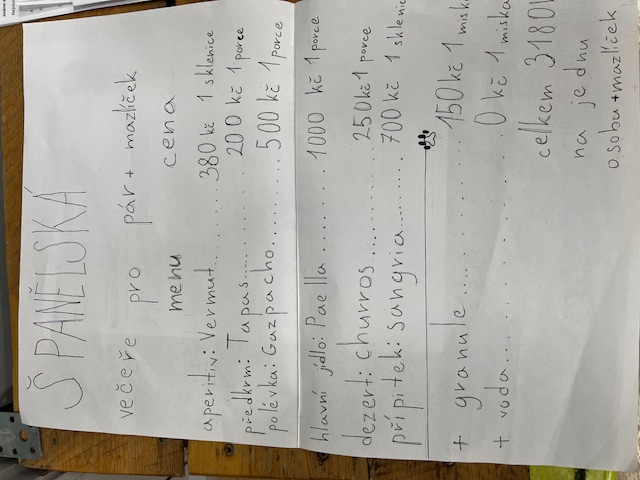 ŠPANĚLSKÁ
večeře pro pár + mazlíček
menu cena
aperitiv: Vermut..... 380 kč 1 sklenice
předkrm: Tapas........ 200 kč 1 porce
polévka: Gazpacho....... 500 kč 1 porce
hlavní jídlo: Paella ........ 1000 kč 1 porce
dezert: churros........... 250 kč 1 porce
přípitek: sangria....... 700 kč 1 sklenic
+ granule............ 150 kč 1 miska
+ voda............. 0 kč 1 miska
celkem 3180
na jednu
osobu + mazlíček